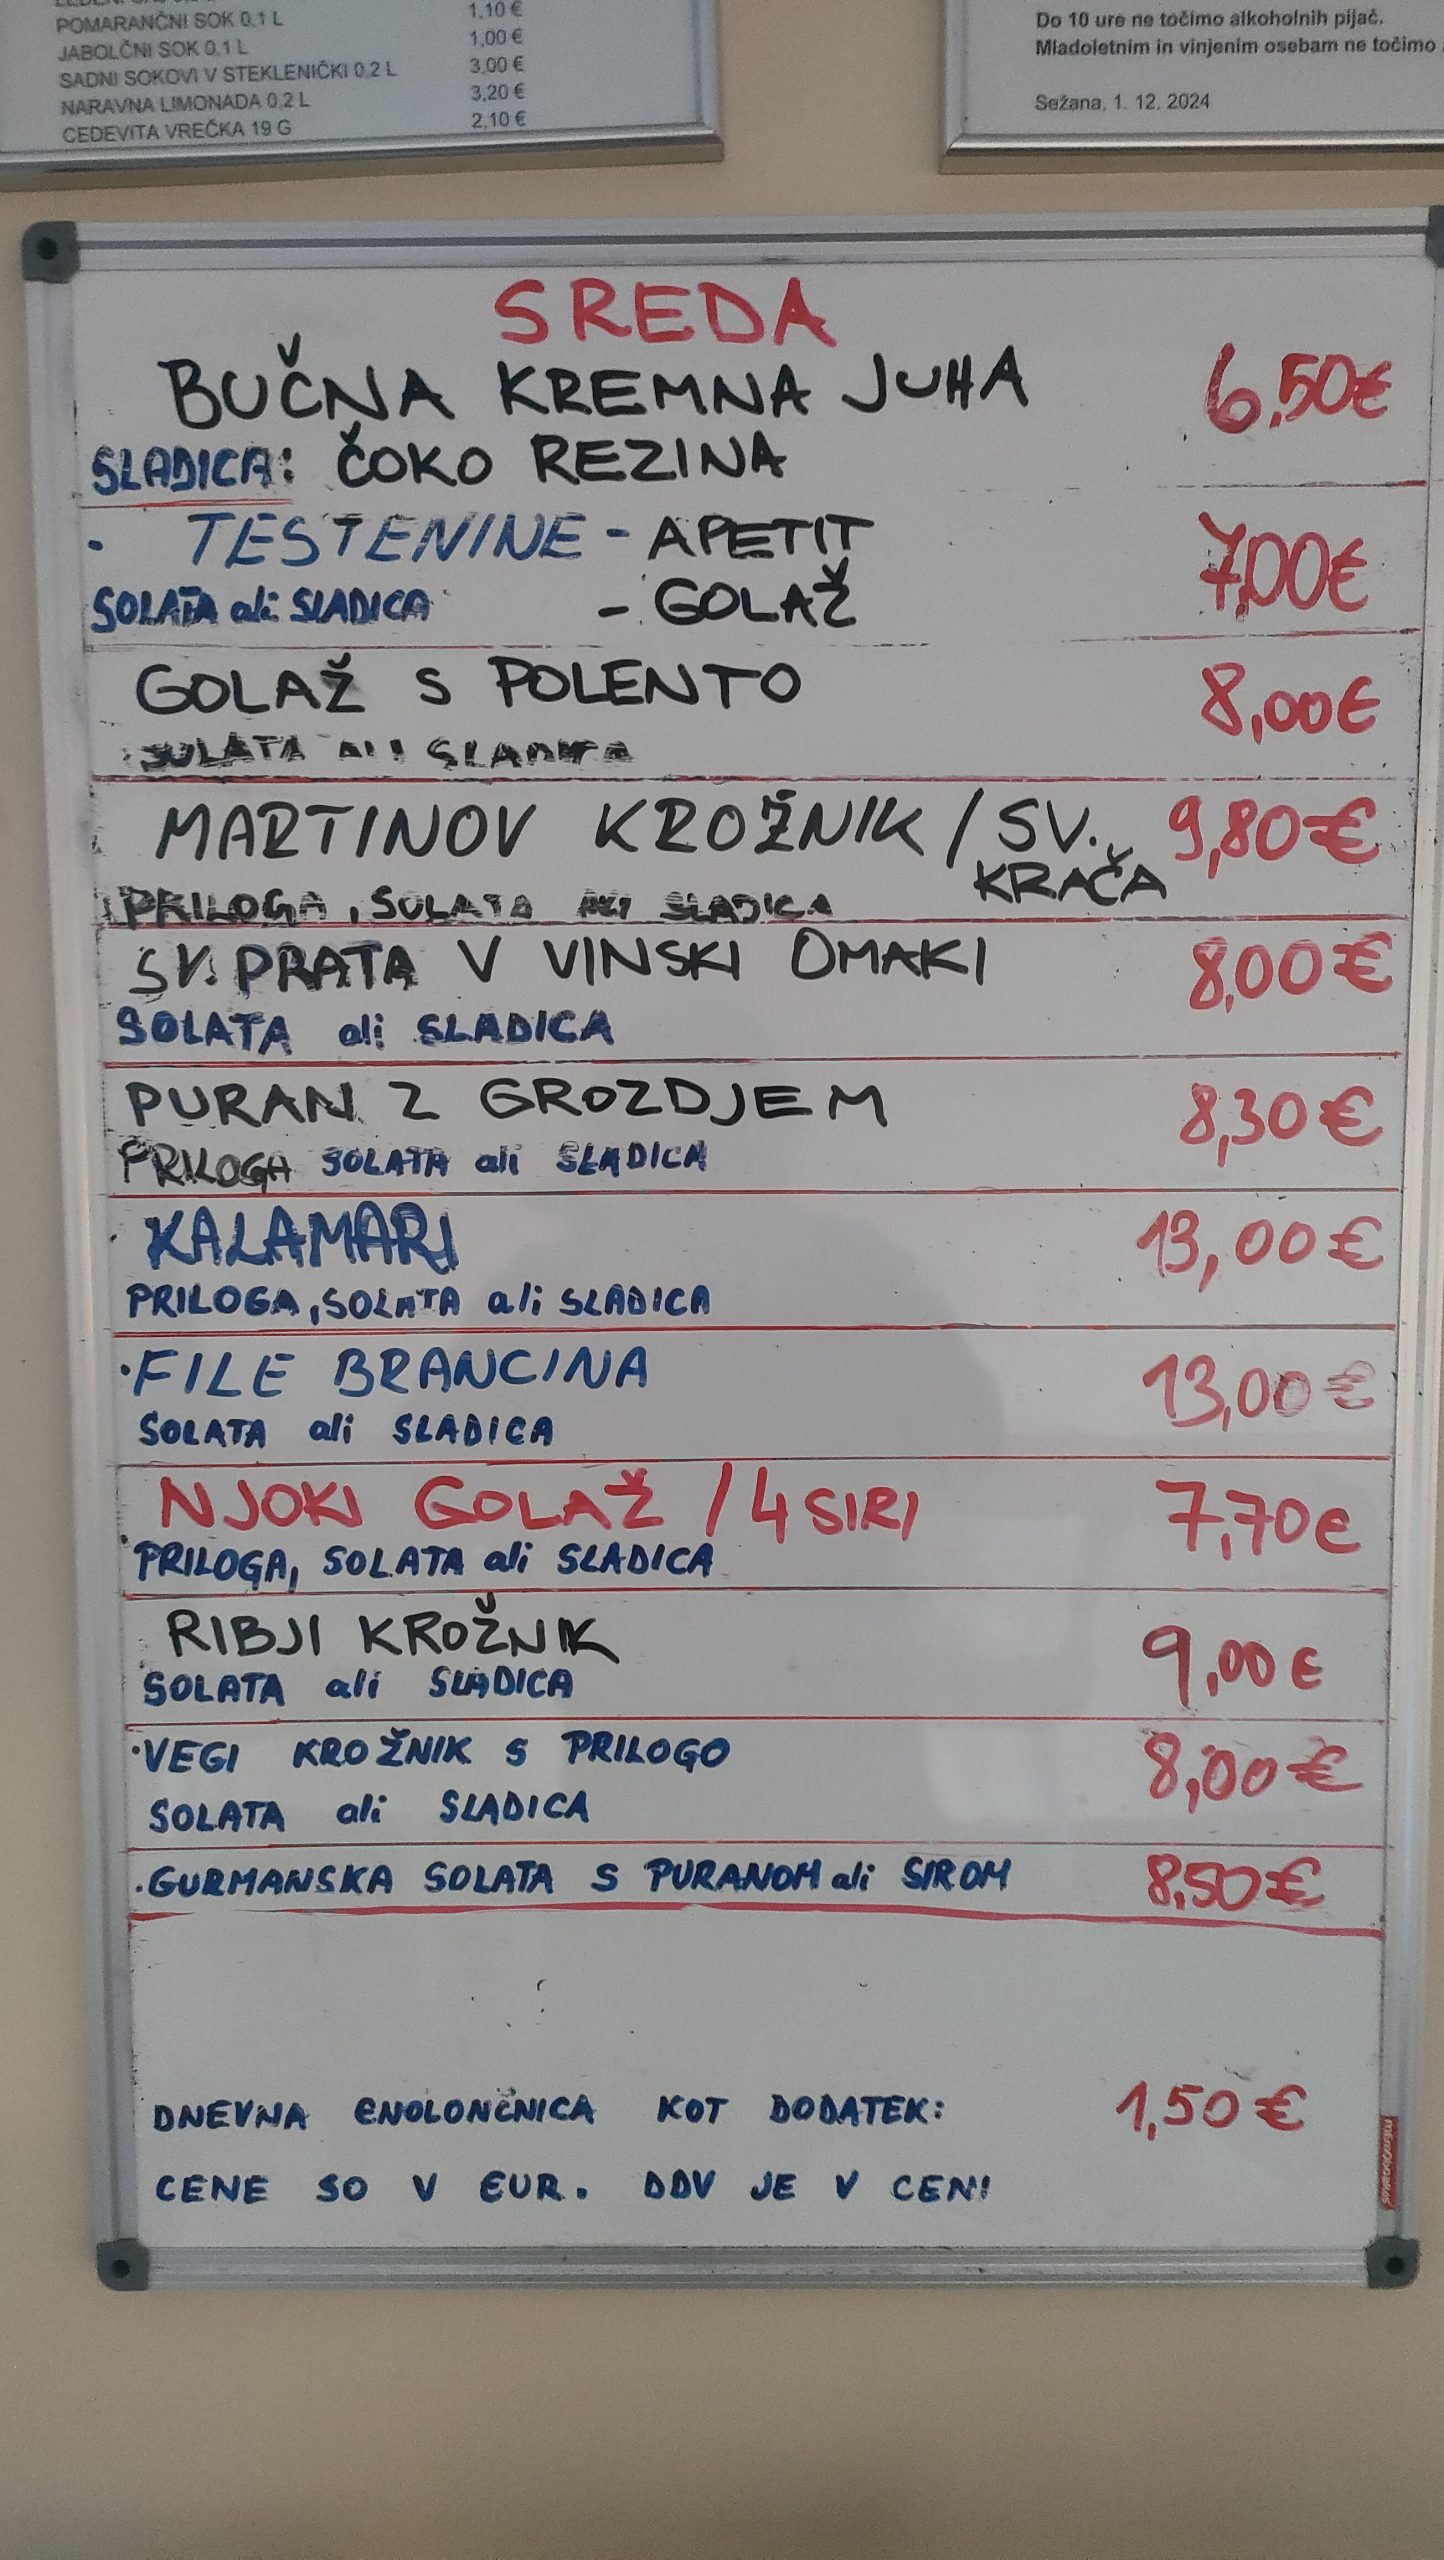 POMARANČNI SOK 0,1 L 1,10 €
JABOLČNI SOK 0,1 L 1,00 €
SADNI SOKOVI V STEKLENIČKI 0,2 L 3,00 €
NARAVNA LIMONADA 0,2 L 3,20 €
CEDEVITA VREČKA 19 G 2,10 €
Do 10 ure ne točimo alkoholnih pijač.
Mladoletnim in vinjenim osebam ne točimo
Sežana, 1. 12. 2024
SREDA
BUČNA KREMNA JUHA 6,50€
SLADICA: ČOKO REZINA
· TESTENINE - APETIT 7,00€
SOLATA ali SLADICA - GOLAŽ
GOLAŽ S POLENTO 8,00€
SOLATA ALI SLADICA
MARTINOV KROŽNIK / SV. 9,80€
KRAČA
PRILOGA, SOLATA ALI SLADICA
SV. PRATA V VINSKI OMAKI 8,00€
SOLATA ali SLADICA
PURAN Z GROZDJEM 8,30€
PRILOGA SOLATA ali SLADICA
KALAMARI 13,00€
PRILOGA, SOLATA ali SLADICA
·FILE BRANCINA 13,00€
SOLATA ali SLADICA
NJOKI GOLAŽ / 4 SIRI 7,70€
PRILOGA, SOLATA ali SLADICA
RIBJI KROŽNIK 9,00€
SOLATA ali SLADICA
·VEGI KROŽNIK S PRILOGO 8,00€
SOLATA ali SLADICA
·GURMANSKA SOLATA S PURANOM ali SIROM 8,50€
DNEVNA ENOLONČNICA KOT DODATEK: 1,50€
CENE SO V EUR. DDV JE V CENI